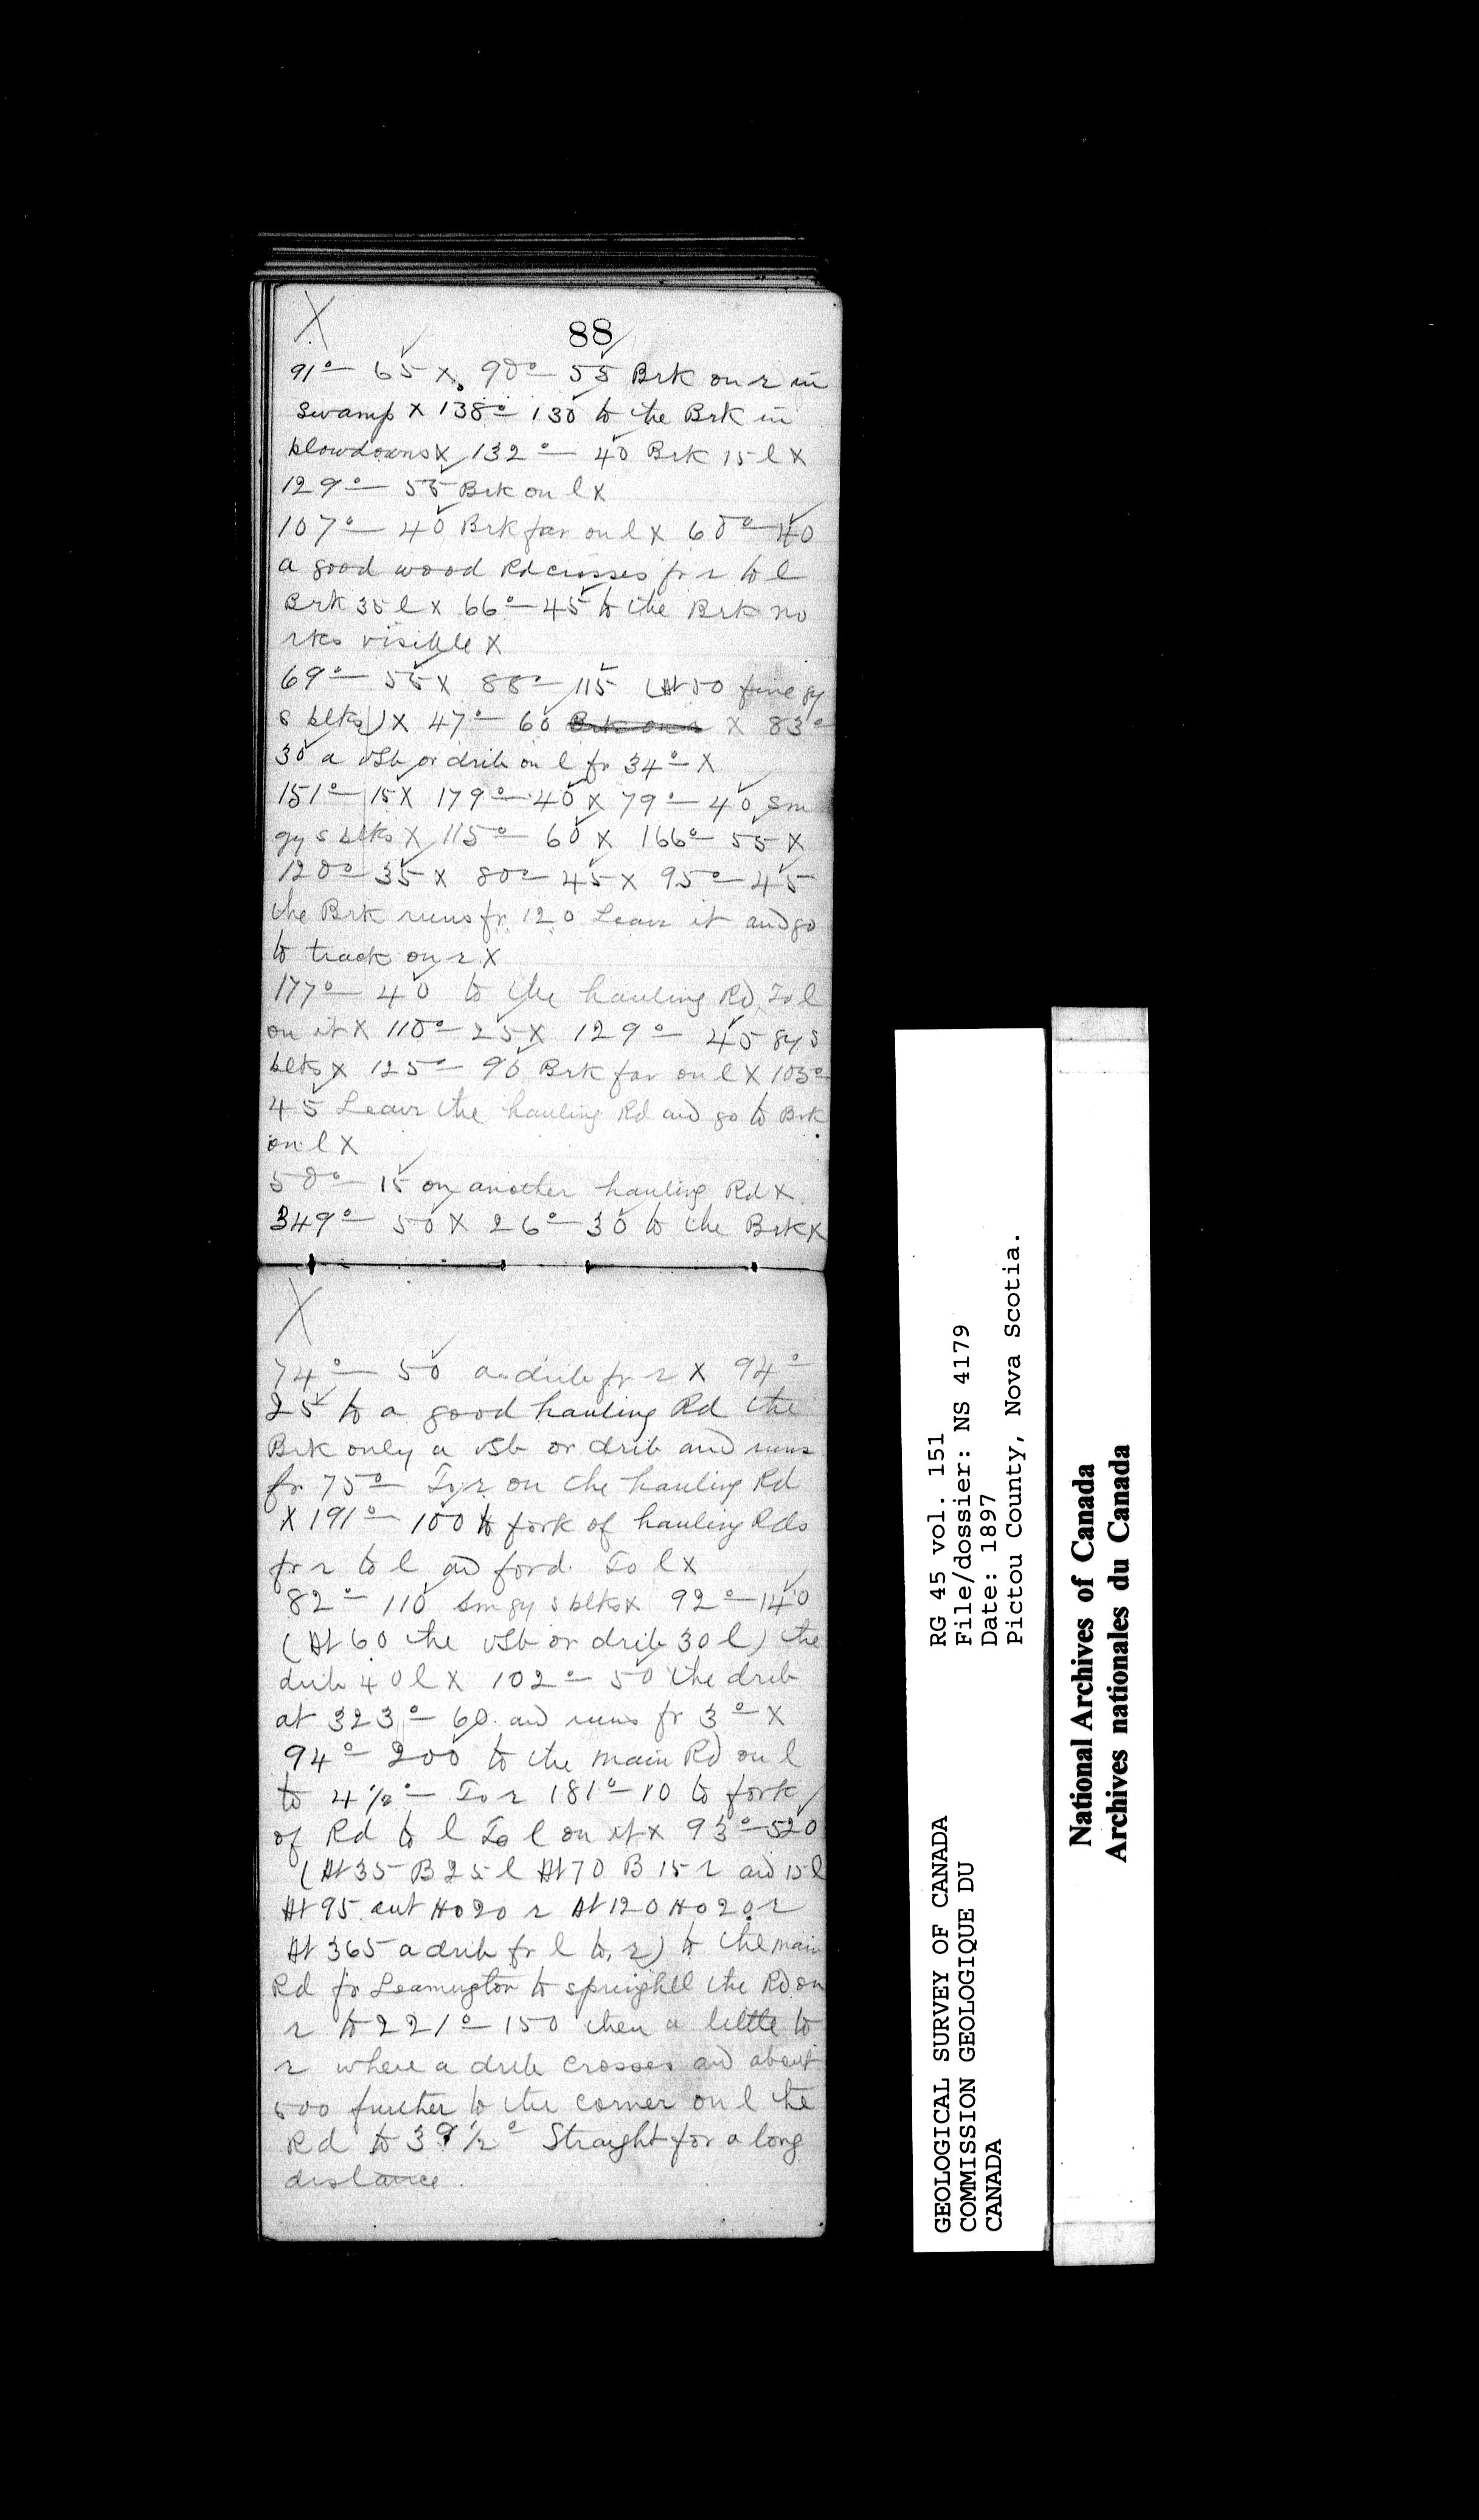 X
88
91° — 65 X 90° — 55 Brk on r in
swamp X 138° — 130 to the Brk in
blowdowns X 132° — 40 Brk 15 l X
129° — 55 Brk on l X
107° — 40 Brk far on l X 60° — 40
a good wood Rd crosses fr r to l
Brk 35 l X 66° — 45 to the Brk no
rks visible X
69° — 55 X 88° — 115 (At 50 fine gy
s blks) X 47° — 60 Brk on r X 83°
30 a vSb or drib on l fr 34° — X
151° — 15 X 179° — 40 X 79° — 40 sm
gy s blks X 115° — 60 X 166° — 55 X
120° — 35 X 80° — 45 X 95° — 45
the Brk runs fr 120 Leave it and go
to track on r X
177° — 40 to the hauling Rd To l
on it X 110° — 25 X 129° — 45 gy s
blks X 125° — 90 Brk far on l X 103°
45 Leave the hauling Rd and go to Brk
on l X
50° — 15 on another hauling Rd X
349° — 50 X 26° — 30 to the Brk X
X
74° — 50 a drib fr r X 94°
25 to a good hauling Rd the
Brk only a vSb or drib and runs
fr 75° — To r on the hauling Rd
X 191° — 100 to fork of hauling Rds
fr r to l and ford. To l X
82° — 110 sm gy s blks X 92° — 140
(At 60 the vSb or drib 30 l) the
drib 40 l X 102° — 50 the drib
at 323° — 60 and runs fr 3° — X
94° — 200 to the main Rd on l
to 4½° — To r 181° — 10 to fork
of Rd to l To l on it X 93° — 520
(At 35 B 25 l At 70 B 15 r and 15 l
At 95 out Ho 20 r At 120 Ho 20 r
At 365 a drib fr l to r) to the main
Rd fr Leamington to springhill the Rd on
r to 221° — 150 then a little to
r where a drib crosses and about
500 further to the corner on l the
Rd to 39½° Straight for a long
distance.
GEOLOGICAL SURVEY OF CANADA
COMMISSION GEOLOGIQUE DU
CANADA
RG 45 vol. 151
File/dossier: NS 4179
Date: 1897
Pictou County, Nova Scotia.
National Archives of Canada
Archives nationales du Canada